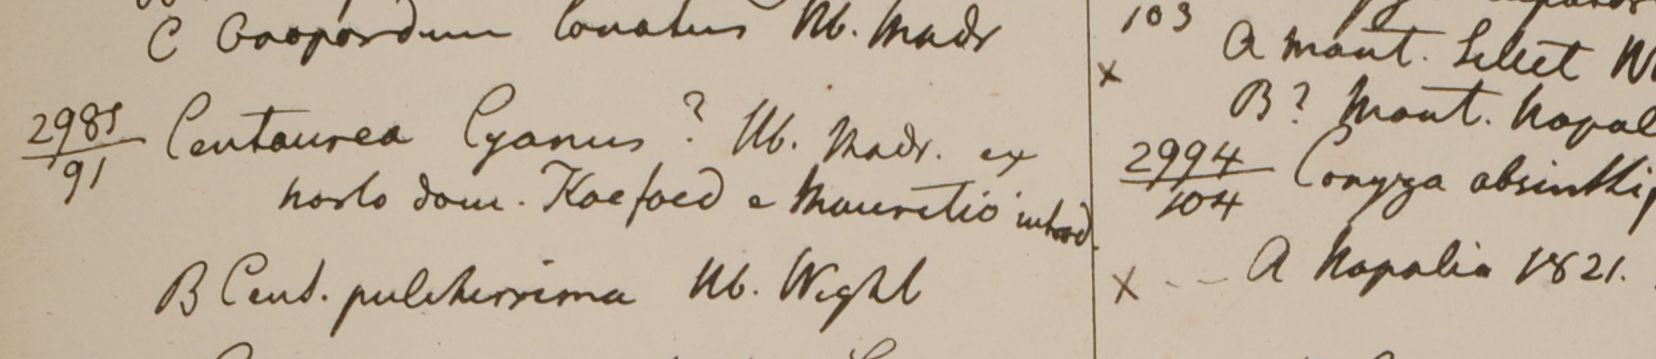 C Onopordum lanatus Hb. Madr
2981/91 Centaurea Cyanus ? Hb. Madr. ex
horto dom. Koefoed e Mauritio introd.
B Cent. pulcherrima Hb. Wight
103
A mont. Sillet
x B? Mont. Napal
2994/104 Conyza absinthi
x -- A Napalia 1821.